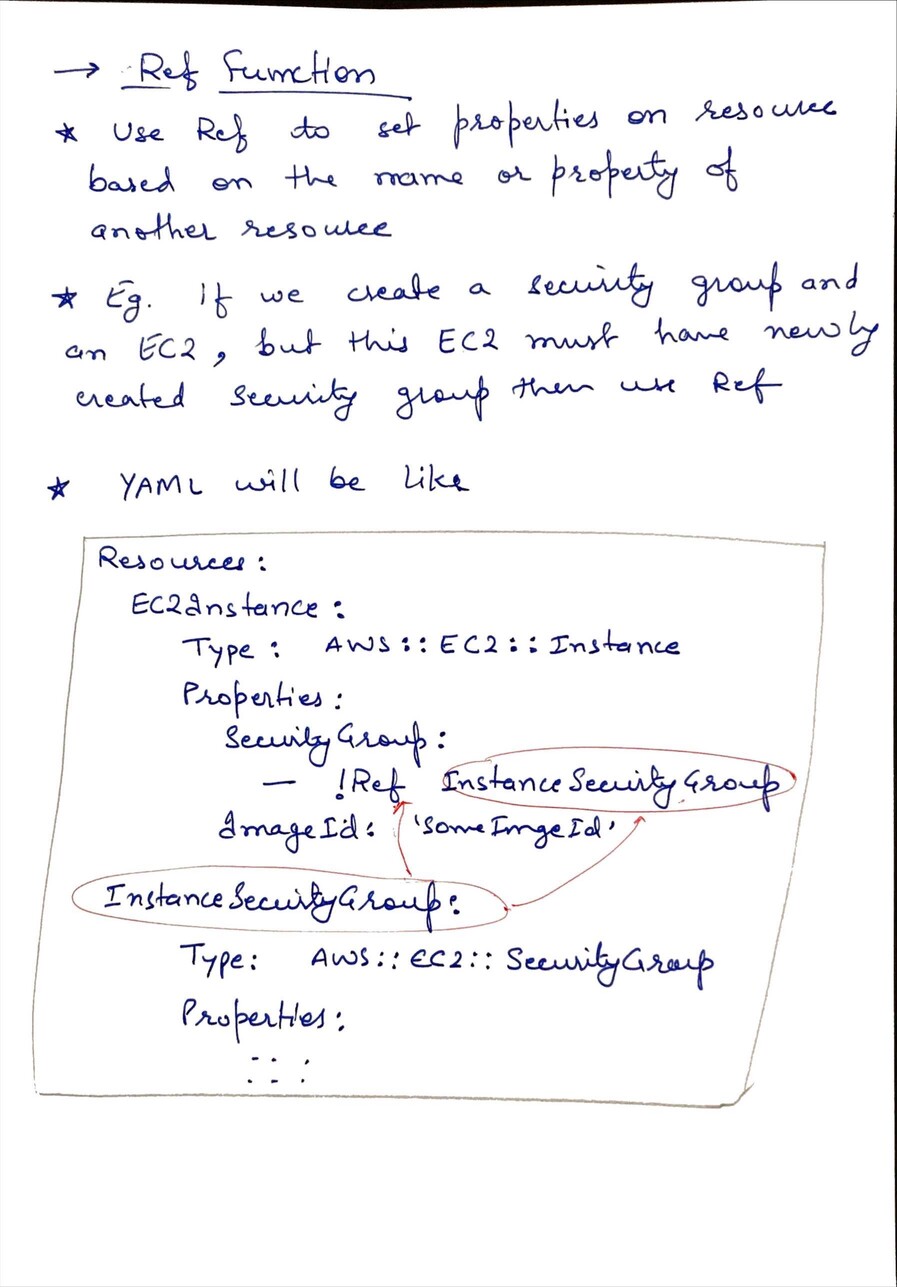 → Ref Function
* Use Ref to set properties on resource
based on the name or property of
another resource
* Eg. If we create a security group and
an EC2, but this EC2 must have newly
created security group then use Ref
* YAML will be like
Resources:
EC2Instance:
Type: AWS::EC2::Instance
Properties:
SecurityGroup:
- !Ref InstanceSecurityGroup
ImageId: 'someImgeId'
InstanceSecurityGroup:
Type: AWS::EC2::SecurityGroup
Properties: